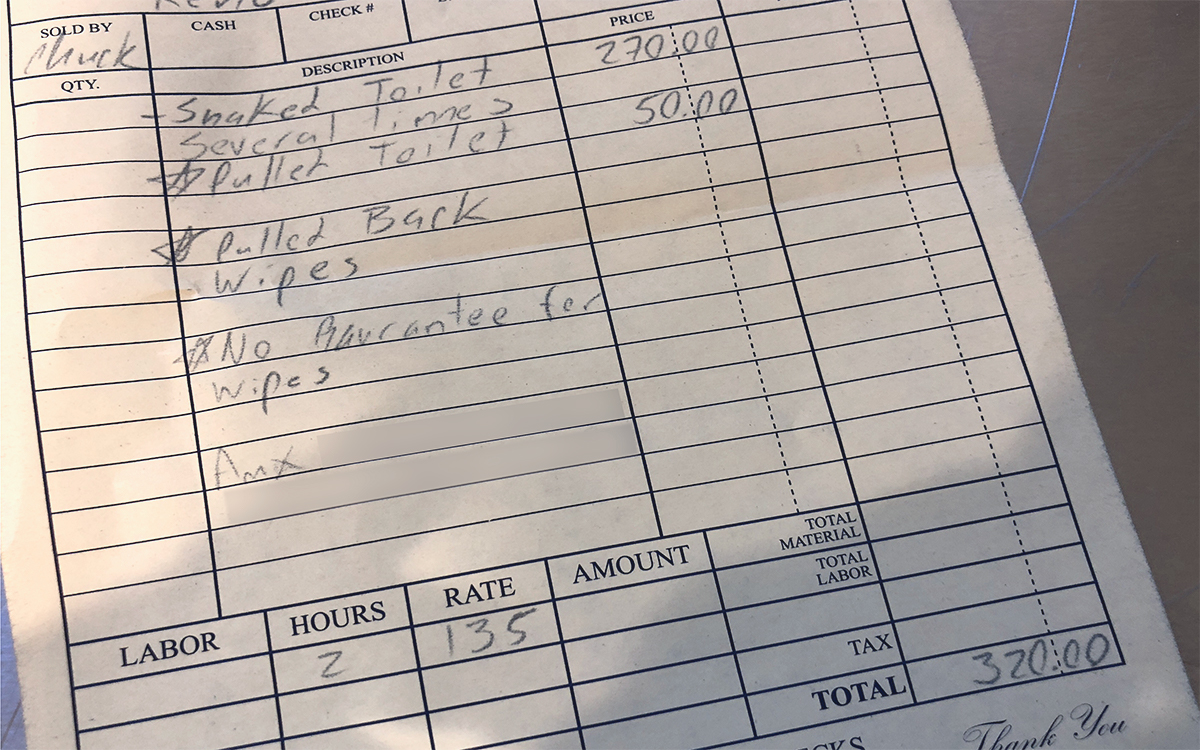 SOLD BY CASH CHECK #
Chuck
QTY. DESCRIPTION PRICE
- Snaked Toilet 270.00
Several Times 50.00
Pulled Toilet
Pulled Back
Wipes
No Gaurantee for
wipes
Amx
LABOR HOURS RATE AMOUNT
2 135
TOTAL MATERIAL
TOTAL LABOR
TAX
TOTAL 320.00
Thank You